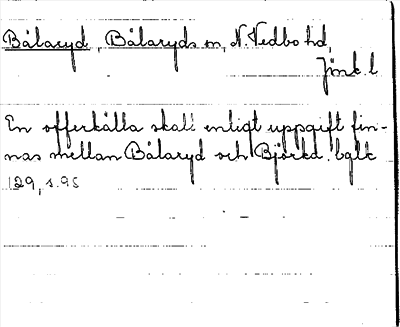 Bälaryd, Bälaryds sn, N. Vedbo hd,
Jönk. l
En offerkälla skall enligt uppgift fin-
nas mellan Bälaryd och Björkd. bglt
129, s. 95